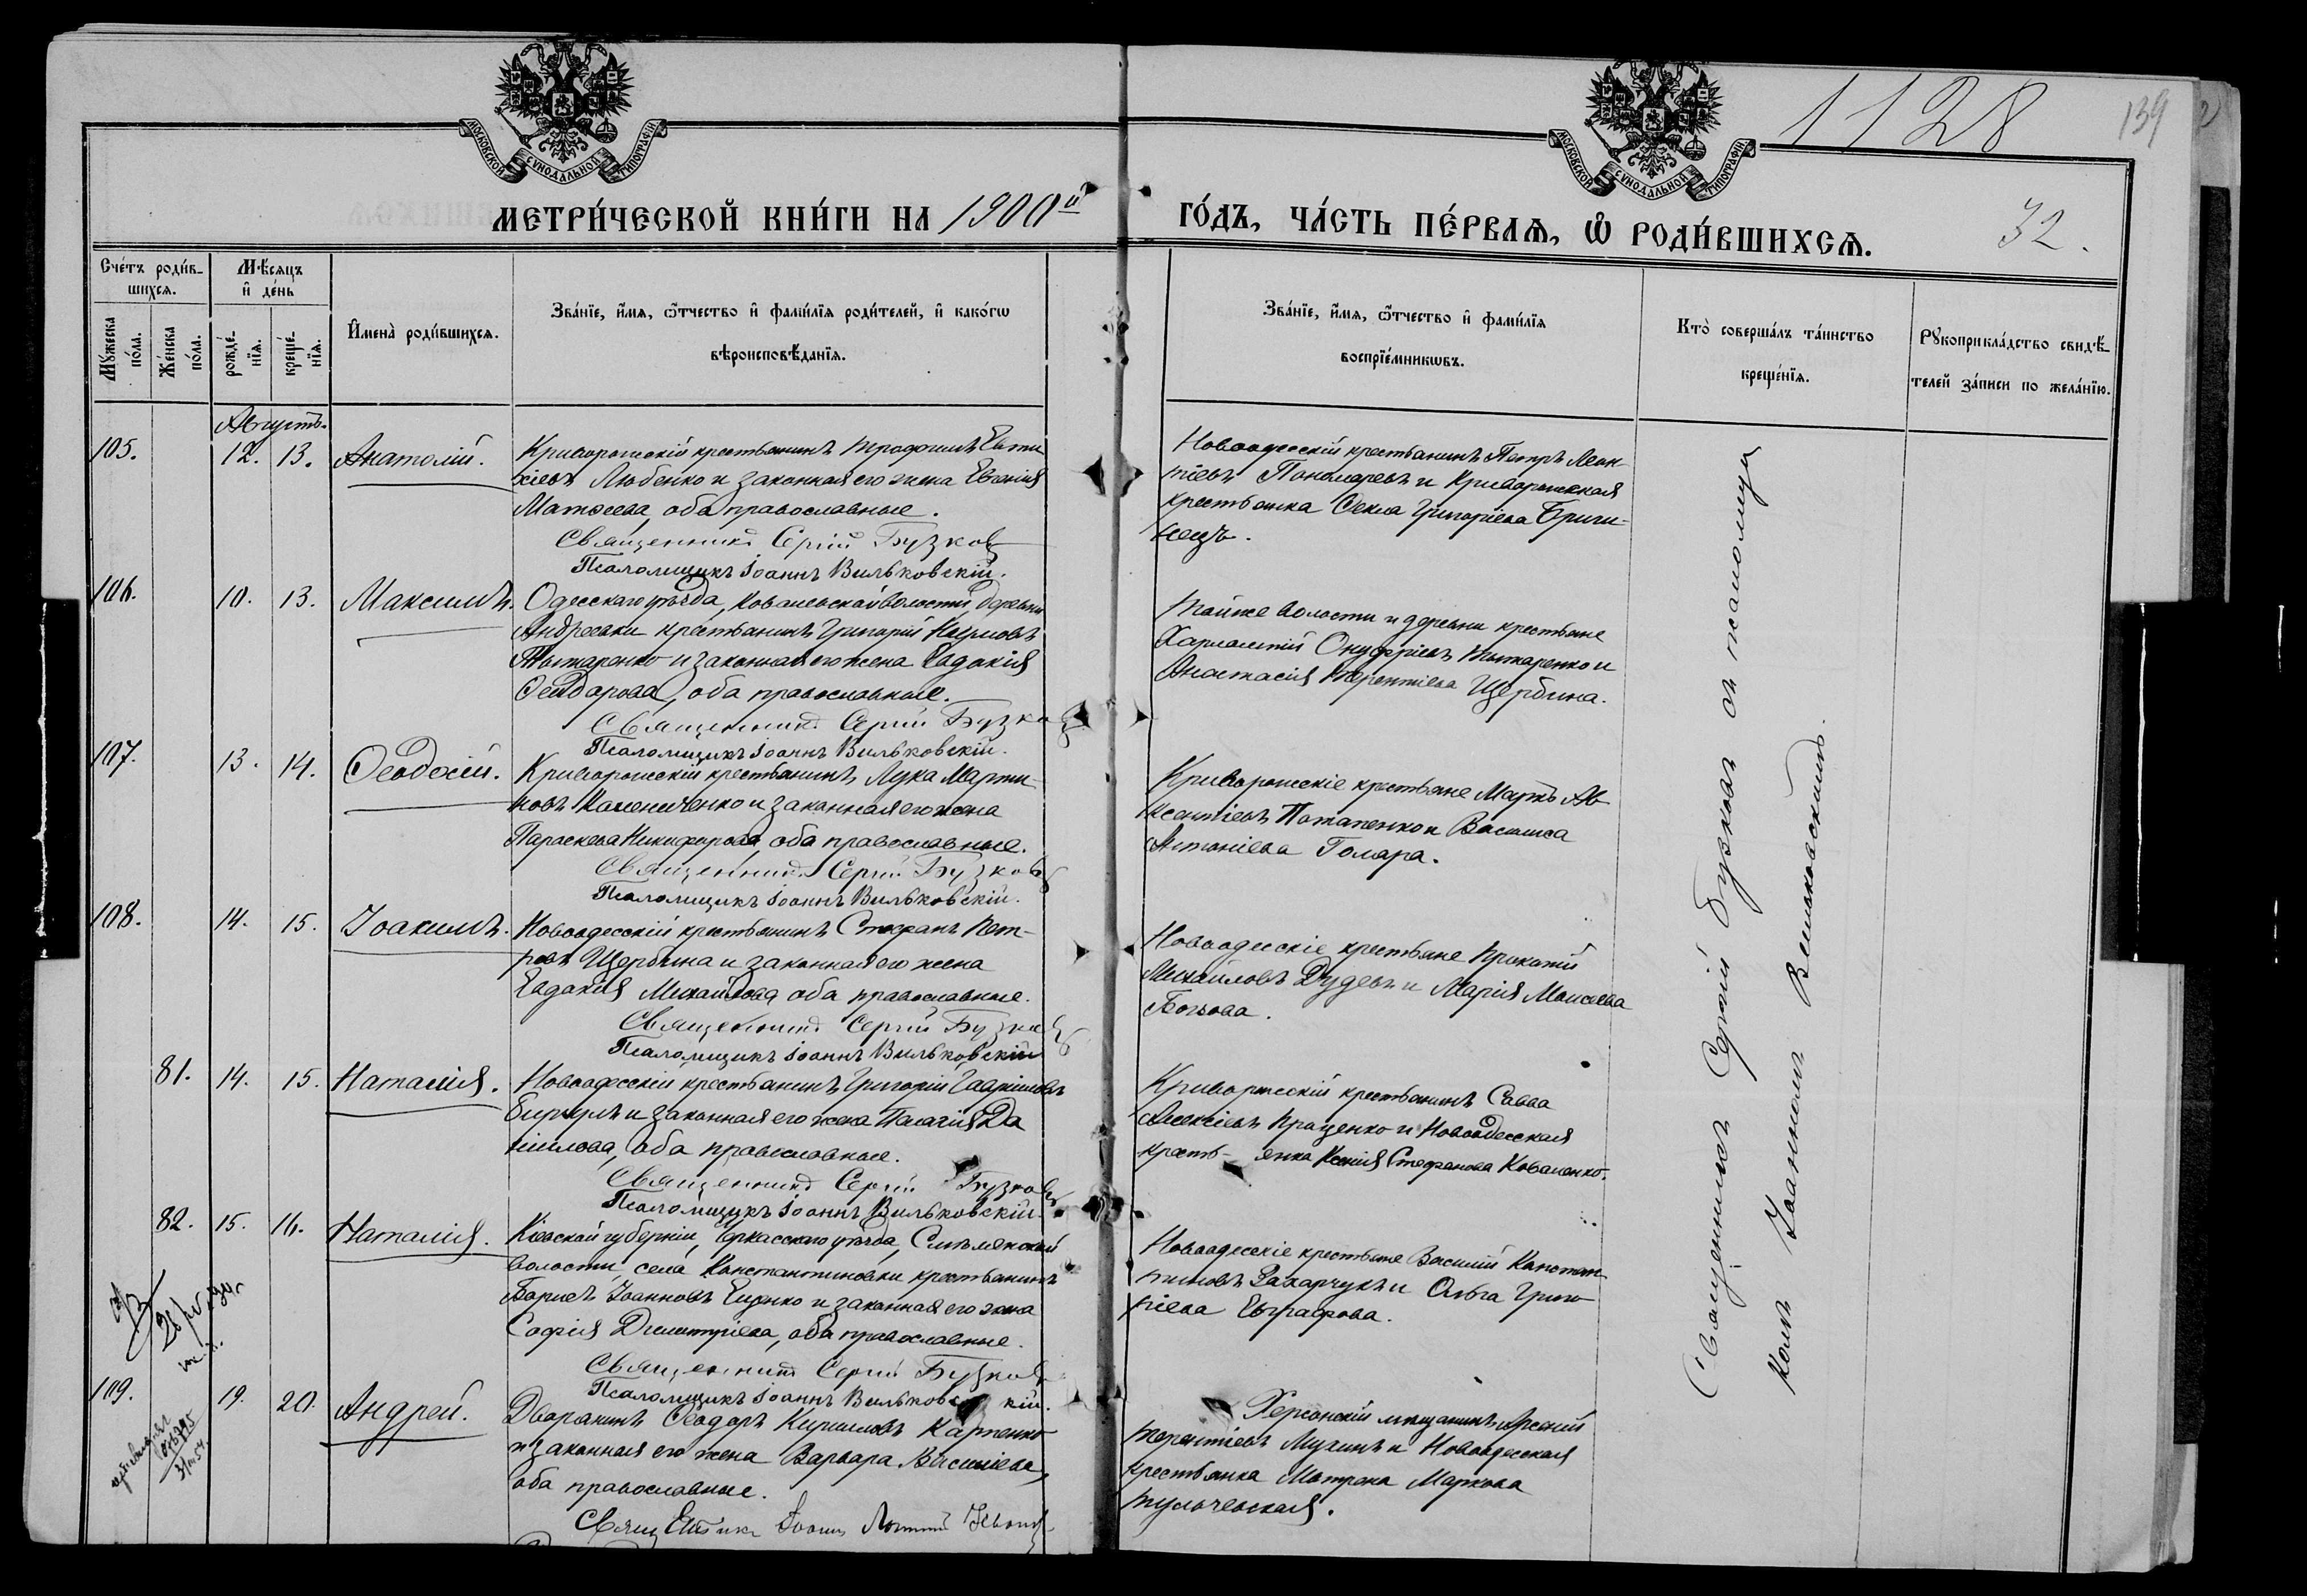 1128
139
МОСКОВСКОЙ СѴНОДАЛЬНОЙ ТИПОГРАФІИ
МОСКОВСКОЙ СѴНОДАЛЬНОЙ ТИПОГРАФІИ
МЕТРИ́ЧЕСКОЙ КНИ́ГИ НА 1900й
ГО́ДЪ, ЧА́СТЬ ПЕ́РВАѦ, Ѡ РОДИ́ВШИХСѦ.
32.
Сче́тъ роди́в-
шихсѧ.
Мѣ́сѧцъ
и҆ де́нь
Мꙋ́жеска
по́ла.
Же́нска
по́ла.
рожде́-
нїѧ.
креще́-
нїѧ.
И҆мена̀ роди́вшихсѧ.
Зва́нїе, и҆́мѧ, ѻ҆́тчество и҆ фами́лїѧ роди́телей, и҆ како́гѡ
вѣроисповѣ́данїѧ.
Зва́нїе, и҆́мѧ, ѻ҆́тчество и҆ фами́лїѧ
воспрїе́мникѡвъ.
Кто̀ соверша́лъ та́инство
креще́нїѧ.
Рꙋкоприкла́дство свидѣ́-
телей за́писи по жела́нїю.
Августъ.
105. 12. 13. Анатолій.
Криворожскій крестьянинъ Трофимъ Евти
хіевъ Любенко и законная его жена Евгенія
Матѳеева, оба православные.
Священникъ Сергій Бузковъ
Псаломщикъ Іоаннъ Вильковскій.
Новоодесскій крестьянинъ Петръ Леон-
тіевъ Пономаревъ и Криворожская
крестьянка Ѳекла Григоріева Бриги-
нецъ.
106. 10. 13. Максимъ.
Одесскаго уѣзда, Ковалевской волости, деревни
Андреевки крестьянинъ Григорій Наумовъ
Тытаренко и законная его жена Евдокія
Ѳеодорова, оба православные.
Священникъ Сергій Бузковъ
Псаломщикъ Іоаннъ Вильковскій.
Тойже волости и деревни крестьяне
Харлампій Онуфріевъ Тытаренко и
Анастасія Терентіева Щербина.
107. 13. 14. Ѳеодосій.
Криворожскій крестьянинъ Лука Марти-
новъ Калениченко и законная его жена
Параскева Никифорова, оба православные.
Священникъ Сергій Бузковъ
Псаломщикъ Іоаннъ Вильковскій.
Криворожскіе крестьяне Маркъ Ав-
ксентіевъ Потапенко и Василиса
Антоніева Голара.
108. 14. 15. Іоакимъ.
Новоодесскій крестьянинъ Стефанъ Пет-
ровъ Щербина и законная его жена
Евдокія Михайлова оба православные.
Священникъ Сергій Бузковъ
Псаломщикъ Іоаннъ Вильковскій
Новоодесскіе крестьяне Прокопій
Михайловъ Дудевъ и Марія Моисеева
81. 14. 15. Наталія.
Новоодесскій крестьянинъ Григорій Гавріиловъ
и законная его жена Пелагія Да
ніилова, оба православные.
Священникъ Сергій Бузковъ
Псаломщикъ Іоаннъ Вильковскій.
Криворожскій крестьянинъ Савва
Алексіевъ Проценко и Новоодесская
кресть- янка Ксенія Стефанова Коваленко.
82. 15. 16. Наталія.
Кіевской губерніи, Черкасскаго уѣзда, Смѣлянской
волости, села Константиновки крестьянинъ
Борисъ Іоанновъ Ещенко и законная его жена
Софія Димитріева, оба православные.
Священникъ Сергій Бузковъ
Псаломщикъ Іоаннъ Вильковскій.
Новоодесскіе крестьяне Василій Констан-
тиновъ Захарчукъ и Ольга Григо-
ріева Евграфова.
109. 19. 20. Андрей.
Дворянинъ Ѳеодоръ Кириловъ Карпенко
и законная его жена Варвара Василіева,
оба православные.
Херсонскій мѣщанинъ Арсеній
Терентіевъ Мухинъ и Новоодесская
крестьянка Матрона Маркова
Тульчевская.
Священникъ Сергій Бузковъ съ псаломщи
комъ Іоанномъ Вильковскимъ.